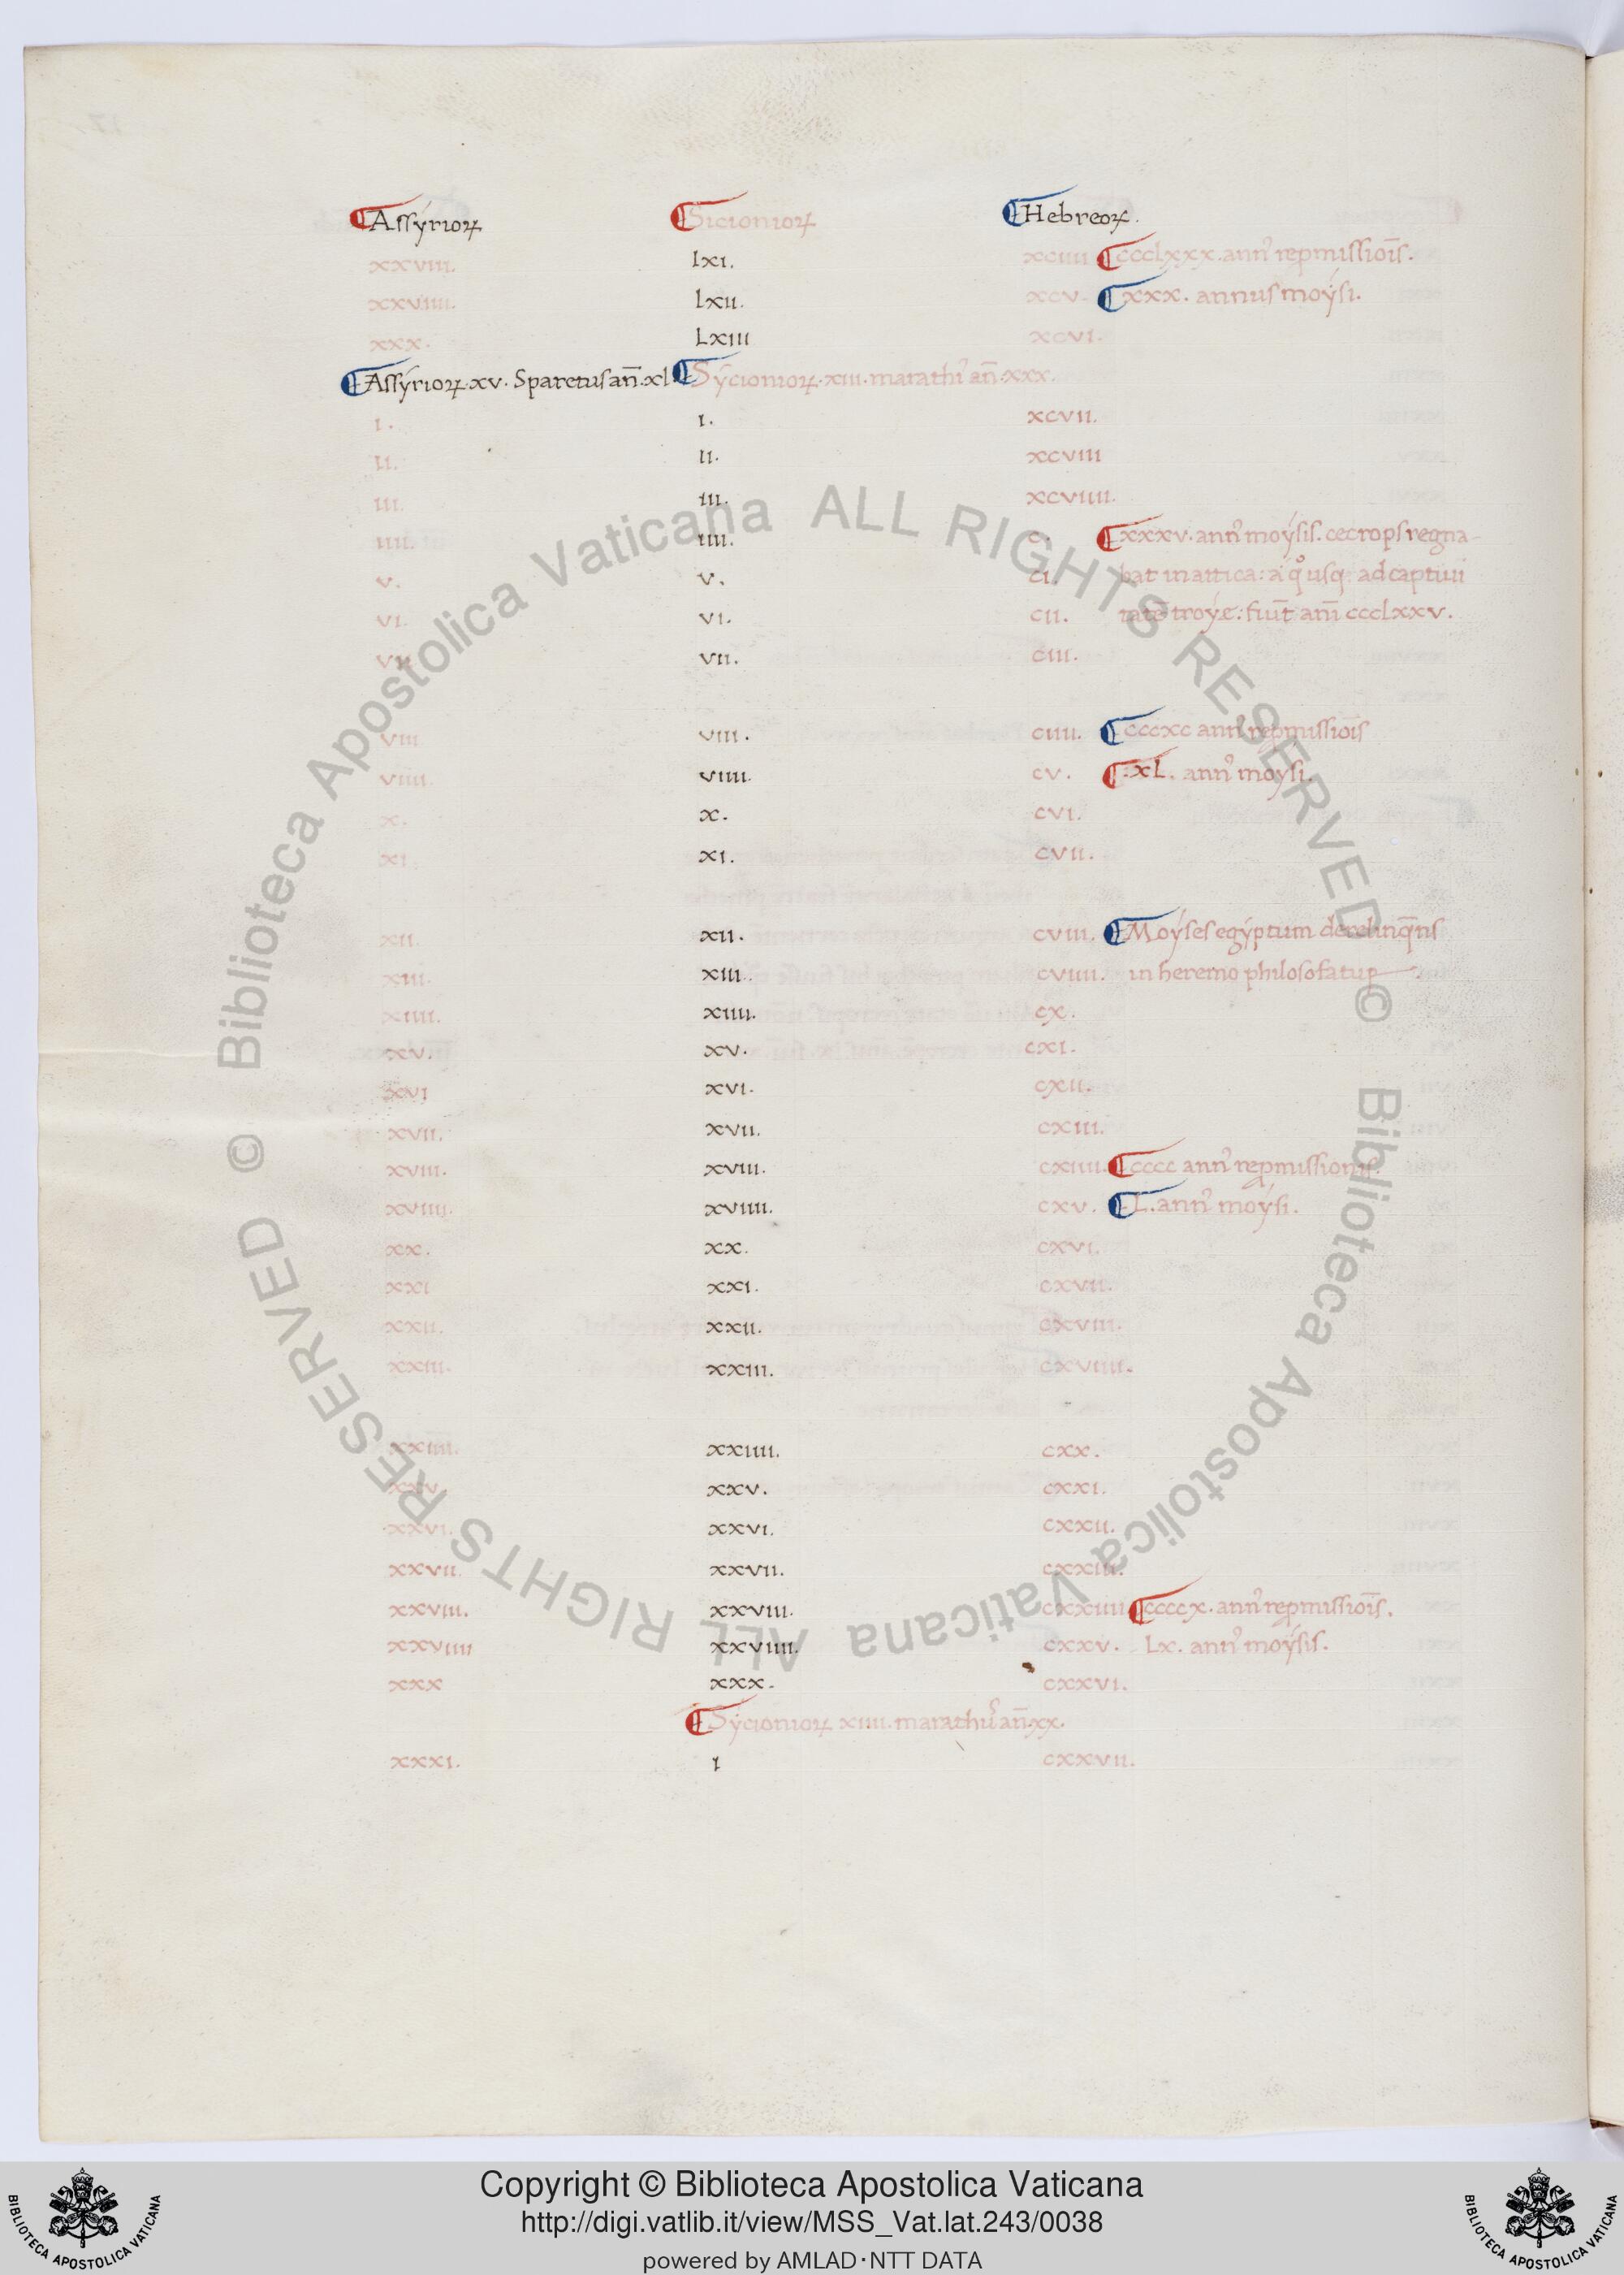 ¶Assyrioꝝ ¶Sicionioꝝ ¶Hebreoꝝ.
xxviii. lxi. xciiii ¶ccclxxx. annꝰ repmissiōis.
xxviiii. lxii. xcv. ¶xxx. annus moysi.
xxx. Lxiii xcvi.
¶Assyrioꝝ. xv. Sparetus an̄. xl ¶Sycionioꝝ. xiii. marathi an̄. xxx.
i. i. xcvii.
ii. ii. xcviii
iii. iii. xcviiii.
iiii. iiii. c. ¶xxxv. annꝰ moysis. cecrops regna-
v. v. ci. bat in attica: a qͦ usq; ad captiui
vi. vi. cii. tatē troye: fiūt anni ccclxxv.
vii vii. ciii.
viii viii. ciiii. ¶cccxc annꝰ repmissiōis
viiii. viiii. cv. ¶.xL. annꝰ moysi.
x. x. cvi.
xi. xi. cvii.
xii. xii. cviii. ¶Moyses egyptum derelinq̄ns
xiii. xiii. cviiii. in heremo philosofatur
xiiii. xiiii. cx.
xv. xv. cxi.
xvi xvi. cxii.
xvii. xvii. cxiii.
xviii. xviii. cxiiii. ¶cccc annꝰ repmissionis.
xviiii. xviiii. cxv. ¶L. annꝰ moysi.
xx. xx. cxvi.
xxi xxi. cxvii.
xxii. xxii. cxviii.
xxiii. xxiii. cxviiii.
xxiiii. xxiiii. cxx.
xxv. xxv. cxxi.
xxvi. xxvi. cxxii.
xxvii. xxvii. cxxiii.
xxviii. xxviii. cxxiiii ¶ccccx. annꝰ repmissiōis.
xxviiii xxviiii. cxxv. Lx. annꝰ moysis.
xxx xxx. cxxvi.
¶Sycionioꝝ xiiii. marathii an̄. xx.
xxxi. i cxxvii.
Biblioteca Apostolica Vaticana ALL RIGHTS RESERVED ©
Biblioteca Apostolica Vaticana ALL RIGHTS RESERVED ©
Copyright © Biblioteca Apostolica Vaticana
http://digi.vatlib.it/view/MSS_Vat.lat.243/0038
powered by AMLAD·NTT DATA
BIBLIOTECA APOSTOLICA VATICANA
BIBLIOTECA APOSTOLICA VATICANA